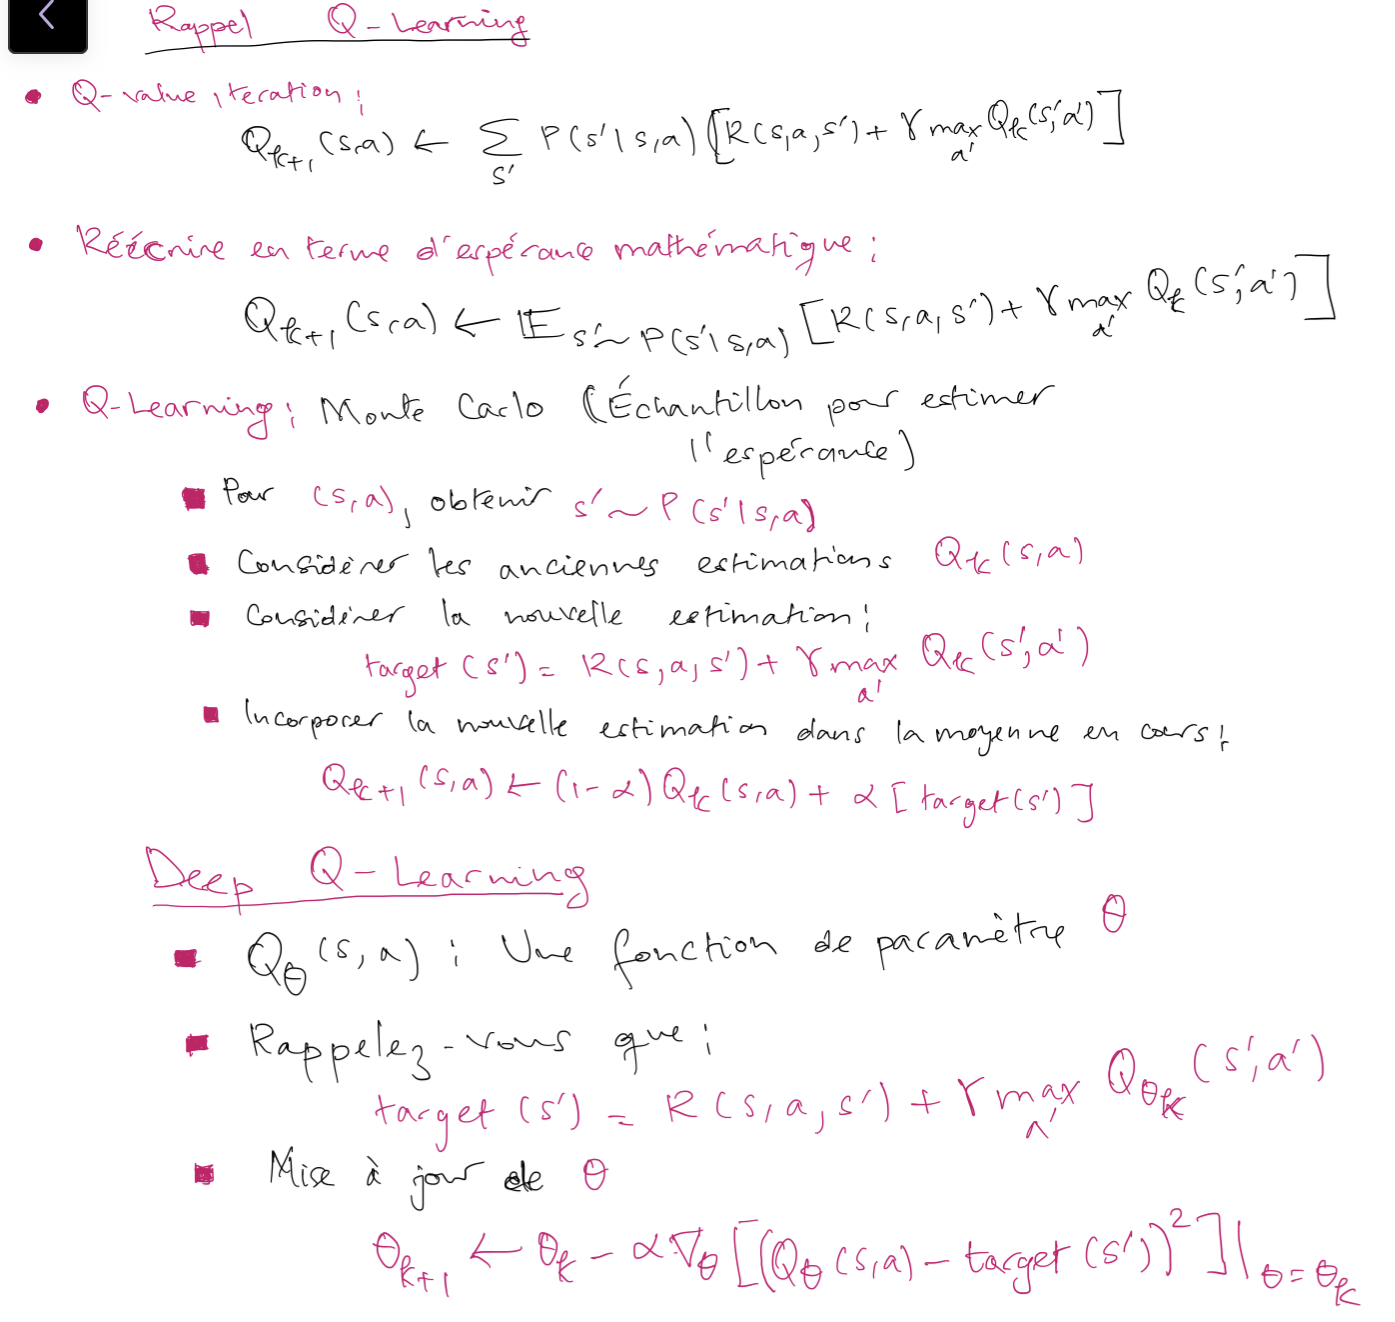 Rappel Q-Learning
• Q-value iteration :
Q_{k+1}(s,a) ← Σ_{s'} P(s'|s,a) [R(s,a,s') + γ max_{a'} Q_k(s',a')]
• Réécrire en terme d'espérance mathématique :
Q_{k+1}(s,a) ← 𝔼_{s'~P(s'|s,a)} [R(s,a,s') + γ max_{a'} Q_k(s',a')]
• Q-Learning : Monte Carlo (Échantillon pour estimer
l'espérance)
▪ Pour (s,a), obtenir s' ~ P(s'|s,a)
▪ Considérer les anciennes estimations Q_k(s,a)
▪ Considérer la nouvelle estimation :
target(s') = R(s,a,s') + γ max_{a'} Q_k(s',a')
▪ Incorporer la nouvelle estimation dans la moyenne en cours :
Q_{k+1}(s,a) ← (1-α) Q_k(s,a) + α [target(s')]
Deep Q-Learning
▪ Q_θ(s,a) : Une fonction de paramètre θ
▪ Rappelez-vous que :
target(s') = R(s,a,s') + γ max_{a'} Q_{θ_k}(s',a')
▪ Mise à jour de θ
θ_{k+1} ← θ_k - α ∇_θ [(Q_θ(s,a) - target(s'))²]|_{θ=θ_k}